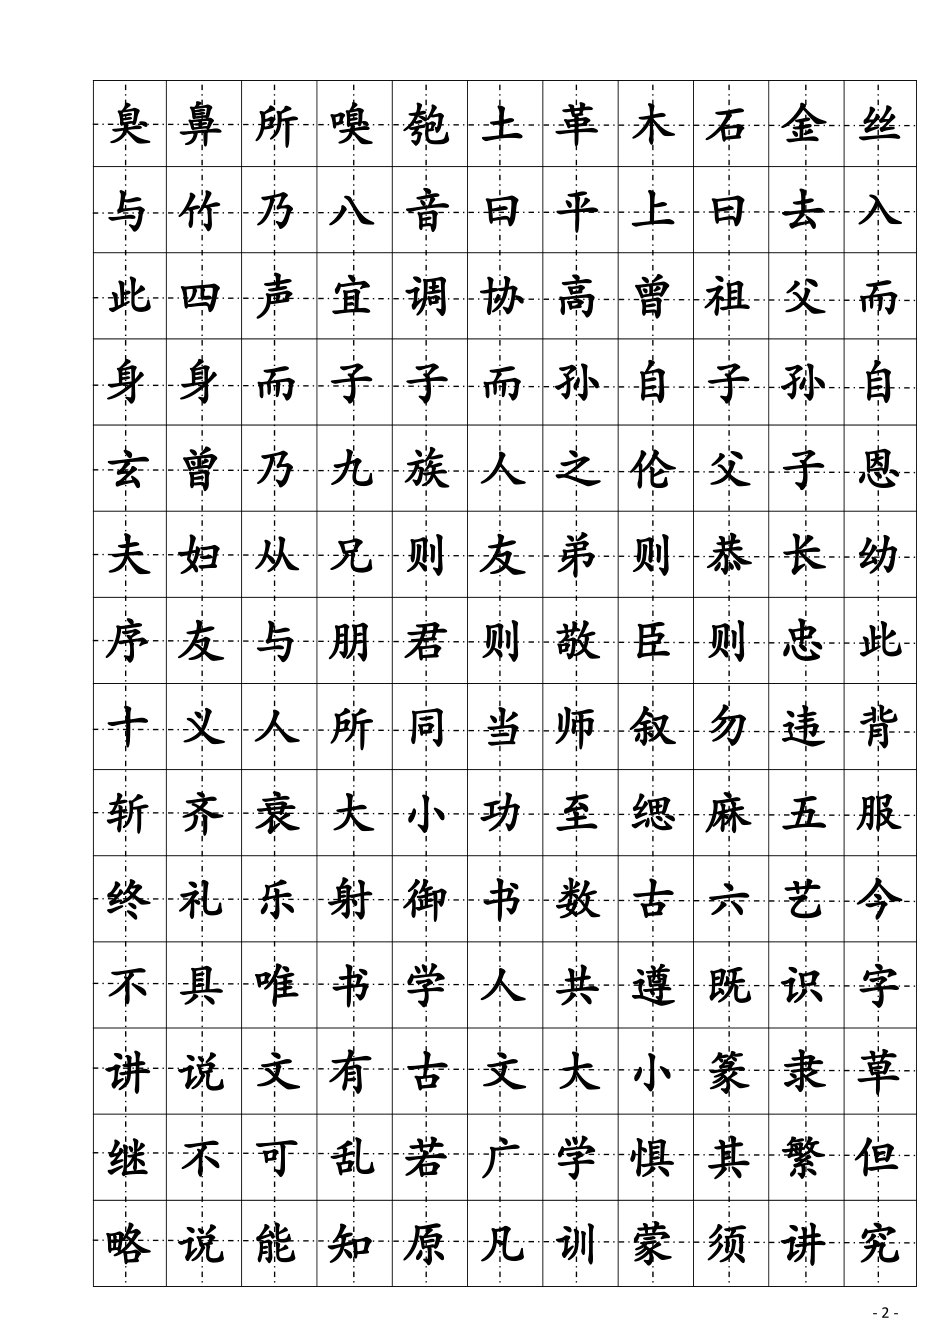 臭鼻所嗅匏土革木石金丝
与竹乃八音曰平上曰去入
此四声宜调协高曾祖父而
身身而子子而孙自子孙自
玄曾乃九族人之伦父子恩
夫妇从兄则友弟则恭长幼
序友与朋君则敬臣则忠此
十义人所同当师叙勿违背
斩齐衰大小功至缌麻五服
终礼乐射御书数古六艺今
不具唯书学人共遵既识字
讲说文有古文大小篆隶草
继不可乱若广学惧其繁但
略说能知原凡训蒙须讲究
- 2 -